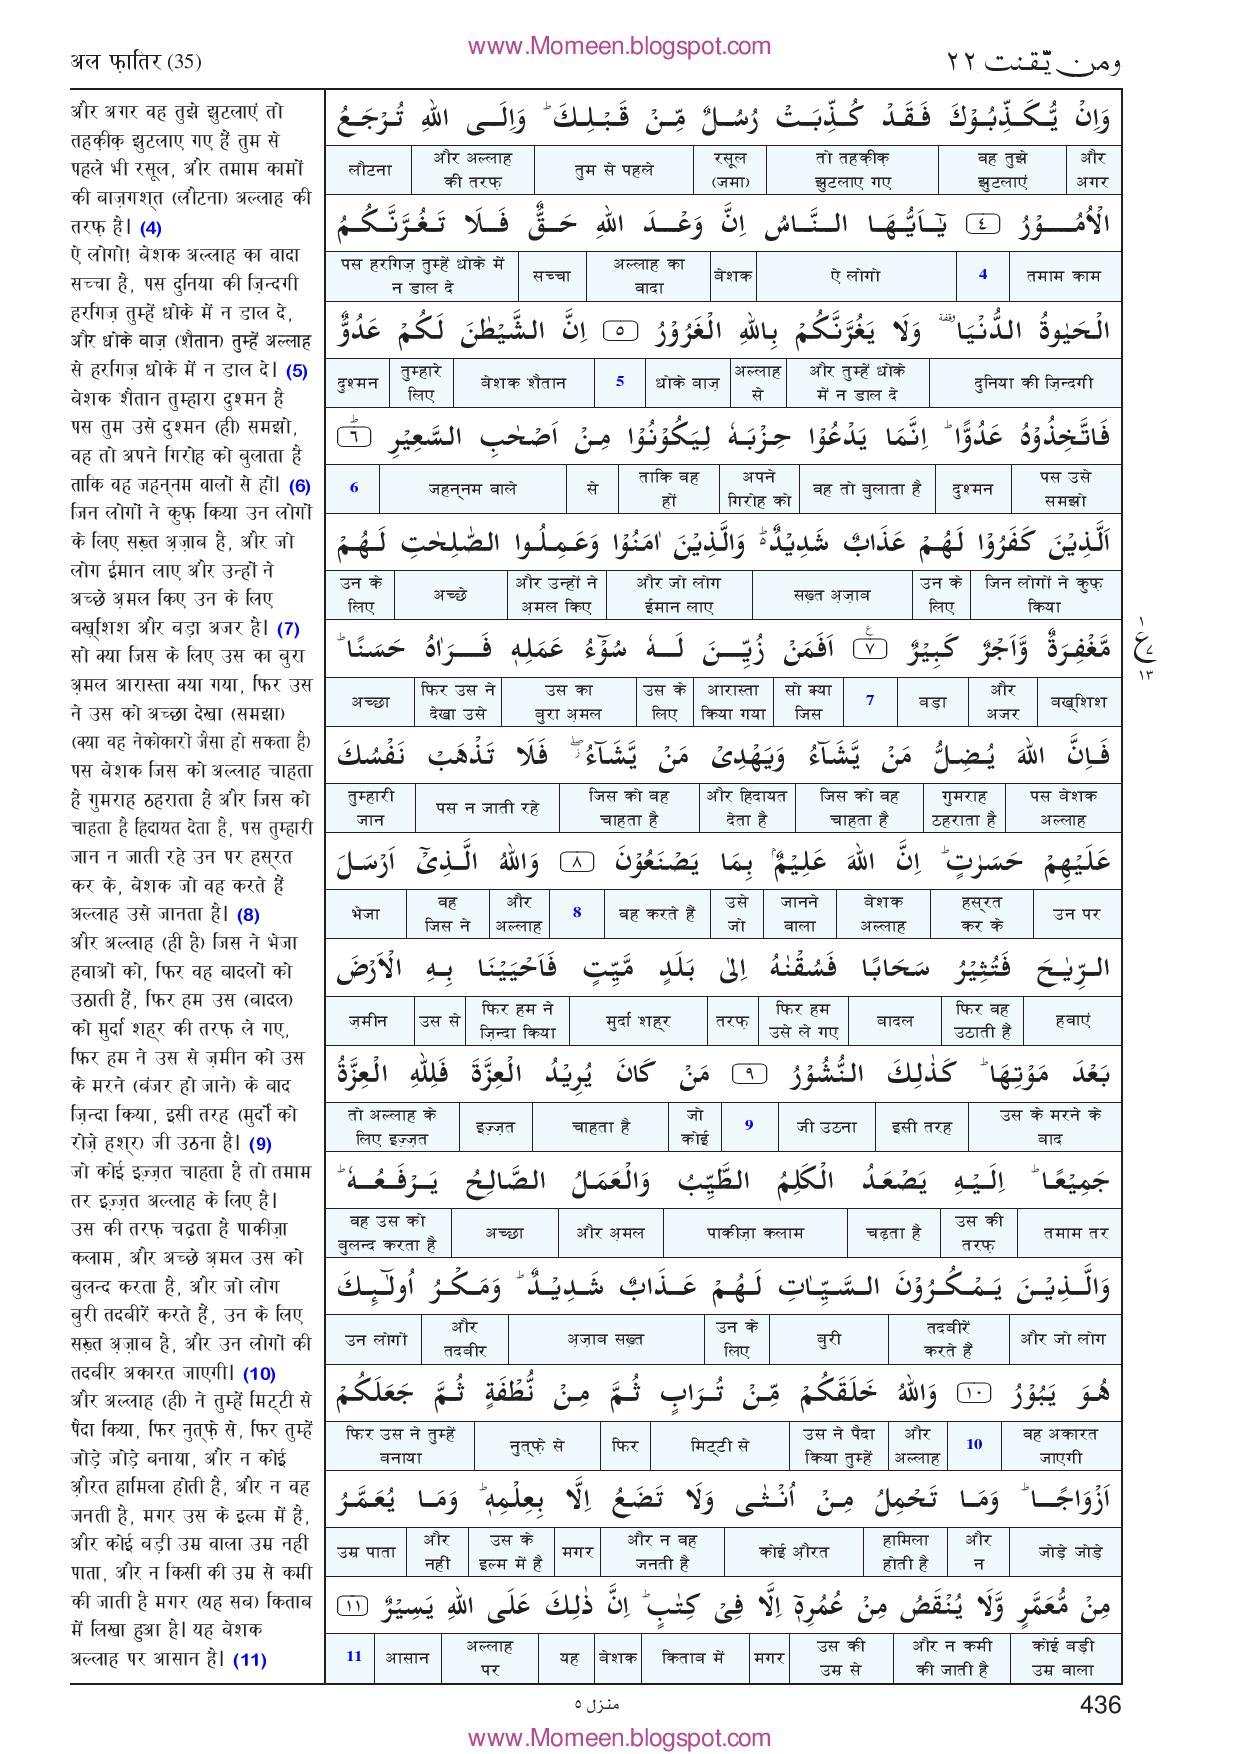 www.Momeen.blogspot.com
अल फ़ातिर (35)
ومن یّقنت ۲۲
और अगर वह तुझे झुटलाएं तो
तहक़ीक़ झुटलाए गए हैं तुम से
पहले भी रसूल, और तमाम कामों
की बाज़गश्त (लौटना) अल्लाह की
तरफ़ है। (4)
ऐ लोगो! बेशक अल्लाह का वादा
सच्चा है, पस दुनिया की ज़िन्दगी
हरगिज़ तुम्हें धोके में न डाल दे,
और धोके बाज़ (शैतान) तुम्हें अल्लाह
से हरगिज़ धोके में न डाल दे। (5)
बेशक शैतान तुम्हारा दुश्मन है
पस तुम उसे दुश्मन (ही) समझो,
वह तो अपने गिरोह को बुलाता है
ताकि वह जहन्नम वालों से हों। (6)
जिन लोगों ने कुफ़ किया उन लोगों
के लिए सख़्त अ़ज़ाब है, और जो
लोग ईमान लाए और उन्हों ने
अच्छे अ़मल किए उन के लिए
बख़्शिश और बड़ा अजर है। (7)
सो क्या जिस के लिए उस का बुरा
अ़मल आरास्ता क्या गया, फिर उस
ने उस को अच्छा देखा (समझा)
(क्या वह नेकोकारों जैसा हो सकता है)
पस बेशक जिस को अल्लाह चाहता
है गुमराह ठहराता है और जिस को
चाहता है हिदायत देता है, पस तुम्हारी
जान न जाती रहे उन पर हस्रत
कर के, बेशक जो वह करते हैं
अल्लाह उसे जानता है। (8)
और अल्लाह (ही है) जिस ने भेजा
हवाओं को, फिर वह बादलों को
उठाती हैं, फिर हम उस (बादल)
को मुर्दा शह्र की तरफ़ ले गए,
फिर हम ने उस से ज़मीन को उस
के मरने (बंजर हो जाने) के बाद
ज़िन्दा किया, इसी तरह (मुर्दों को
रोज़े हश्र) जी उठना है। (9)
जो कोई इज़्ज़त चाहता है तो तमाम
तर इज़्ज़त अल्लाह के लिए है।
उस की तरफ़ चढ़ता है पाकीज़ा
कलाम, और अच्छे अ़मल उस को
बुलन्द करता है, और जो लोग
बुरी तदबीरें करते हैं, उन के लिए
सख़्त अ़ज़ाब है, और उन लोगों की
तदबीर अकारत जाएगी। (10)
और अल्लाह (ही) ने तुम्हें मिट्टी से
पैदा किया, फिर नुत्फ़े से, फिर तुम्हें
जोड़े जोड़े बनाया, और न कोई
औ़रत हामिला होती है, और न वह
जनती है, मगर उस के इल्म में है,
और कोई बड़ी उम्र वाला उम्र नहीं
पाता, और न किसी की उम्र से कमी
की जाती है मगर (यह सब) किताब
में लिखा हुआ है। यह बेशक
अल्लाह पर आसान है। (11)
وَاِنْ یُّكَذِّبُوْكَ فَقَدْ كُذِّبَتْ رُسُلٌ مِّنْ قَبْلِكَ ؕ وَاِلَی اللّٰهِ تُرْجَعُ
और अगर | वह तुझे झुटलाएं | तो तहक़ीक़ झुटलाए गए | रसूल (जमा) | तुम से पहले | और अल्लाह की तरफ़ | लौटना
الْاُمُوْرُ ﴿٤﴾ یٰۤاَیُّهَا النَّاسُ اِنَّ وَعْدَ اللّٰهِ حَقٌّ فَلَا تَغُرَّنَّكُمُ
तमाम काम | 4 | ऐ लोगो | बेशक | अल्लाह का वादा | सच्चा | पस हरगिज़ तुम्हें धोके में न डाल दे
الْحَیٰوةُ الدُّنْیَا ۥ وَلَا یَغُرَّنَّكُمْ بِاللّٰهِ الْغَرُوْرُ ﴿٥﴾ اِنَّ الشَّیْطٰنَ لَكُمْ عَدُوٌّ
दुनिया की ज़िन्दगी | और तुम्हें धोके में न डाल दे | अल्लाह से | धोके बाज़ | 5 | बेशक शैतान | तुम्हारे लिए | दुश्मन
فَاتَّخِذُوْهُ عَدُوًّا ؕ اِنَّمَا یَدْعُوْا حِزْبَهٗ لِیَكُوْنُوْا مِنْ اَصْحٰبِ السَّعِیْرِ ﴿٦﴾ؕ
पस उसे समझो | दुश्मन | वह तो बुलाता है | अपने गिरोह को | ताकि वह हों | से | जहन्नम वाले | 6
اَلَّذِیْنَ كَفَرُوْا لَهُمْ عَذَابٌ شَدِیْدٌ ؕ۬ وَالَّذِیْنَ اٰمَنُوْا وَعَمِلُوا الصّٰلِحٰتِ لَهُمْ
जिन लोगों ने कुफ़ किया | उन के लिए | सख़्त अ़ज़ाब | और जो लोग ईमान लाए | और उन्हों ने अ़मल किए | अच्छे | उन के लिए
مَّغْفِرَةٌ وَّاَجْرٌ كَبِیْرٌ ﴿٧﴾ اَفَمَنْ زُیِّنَ لَهٗ سُوْٓءُ عَمَلِهٖ فَرَاٰهُ حَسَنًا ؕ
बख़्शिश | और अजर | बड़ा | 7 | सो क्या जिस | आरास्ता किया गया | उस के लिए | उस का बुरा अ़मल | फिर उस ने देखा उसे | अच्छा
فَاِنَّ اللّٰهَ یُضِلُّ مَنْ یَّشَآءُ وَیَهْدِیْ مَنْ یَّشَآءُ ۖ فَلَا تَذْهَبْ نَفْسُكَ
पस बेशक अल्लाह | गुमराह ठहराता है | जिस को वह चाहता है | और हिदायत देता है | जिस को वह चाहता है | पस न जाती रहे | तुम्हारी जान
عَلَیْهِمْ حَسَرٰتٍ ؕ اِنَّ اللّٰهَ عَلِیْمٌۢ بِمَا یَصْنَعُوْنَ ﴿٨﴾ وَاللّٰهُ الَّذِیْۤ اَرْسَلَ
उन पर | हस्रत कर के | बेशक अल्लाह | जानने वाला | उसे जो | वह करते हैं | 8 | और अल्लाह | वह जिस ने | भेजा
الرِّیٰحَ فَتُثِیْرُ سَحَابًا فَسُقْنٰهُ اِلٰی بَلَدٍ مَّیِّتٍ فَاَحْیَیْنَا بِهِ الْاَرْضَ
हवाएं | फिर वह उठाती हैं | बादल | फिर हम उसे ले गए | तरफ़ | मुर्दा शह्र | फिर हम ने ज़िन्दा किया | उस से | ज़मीन
بَعْدَ مَوْتِهَا ؕ كَذٰلِكَ النُّشُوْرُ ﴿٩﴾ مَنْ كَانَ یُرِیْدُ الْعِزَّةَ فَلِلّٰهِ الْعِزَّةُ
उस के मरने के बाद | इसी तरह | जी उठना | 9 | जो कोई | चाहता है | इज़्ज़त | तो अल्लाह के लिए इज़्ज़त
جَمِیْعًا ؕ اِلَیْهِ یَصْعَدُ الْكَلِمُ الطَّیِّبُ وَالْعَمَلُ الصَّالِحُ یَرْفَعُهٗ ؕ
तमाम तर | उस की तरफ़ | चढ़ता है | पाकीज़ा कलाम | और अ़मल | अच्छा | वह उस को बुलन्द करता है
وَالَّذِیْنَ یَمْكُرُوْنَ السَّیِّاٰتِ لَهُمْ عَذَابٌ شَدِیْدٌ ؕ وَمَكْرُ اُولٰٓئِكَ
और जो लोग | तदबीरें करते हैं | बुरी | उन के लिए | अ़ज़ाब सख़्त | और तदबीर | उन लोगों
هُوَ یَبُوْرُ ﴿١٠﴾ وَاللّٰهُ خَلَقَكُمْ مِّنْ تُرَابٍ ثُمَّ مِنْ نُّطْفَةٍ ثُمَّ جَعَلَكُمْ
वह अकारत जाएगी | 10 | और अल्लाह | उस ने पैदा किया तुम्हें | मिट्टी से | फिर | नुत्फ़े से | फिर उस ने तुम्हें बनाया
اَزْوَاجًا ؕ وَمَا تَحْمِلُ مِنْ اُنْثٰی وَلَا تَضَعُ اِلَّا بِعِلْمِهٖ ؕ وَمَا یُعَمَّرُ
जोड़े जोड़े | और न | हामिला होती है | कोई औ़रत | और न वह जनती है | मगर | उस के इल्म में है | और नहीं | उम्र पाता
مِنْ مُّعَمَّرٍ وَّلَا یُنْقَصُ مِنْ عُمُرِهٖۤ اِلَّا فِیْ كِتٰبٍ ؕ اِنَّ ذٰلِكَ عَلَی اللّٰهِ یَسِیْرٌ ﴿١١﴾
कोई बड़ी उम्र वाला | और न कमी की जाती है | उस की उम्र से | मगर | किताब में | बेशक | यह | अल्लाह पर | आसान | 11
١
ع
٧
١٣
منزل ٥
436
www.Momeen.blogspot.com